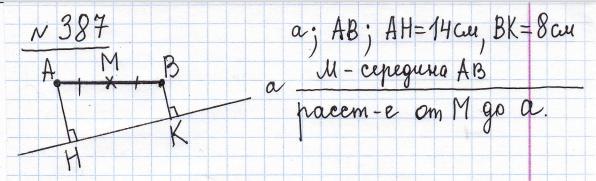 № 387
a; AB; AH=14см, BK=8см
M - середина AB
расст-е от M до a.
A M B
a
K
H